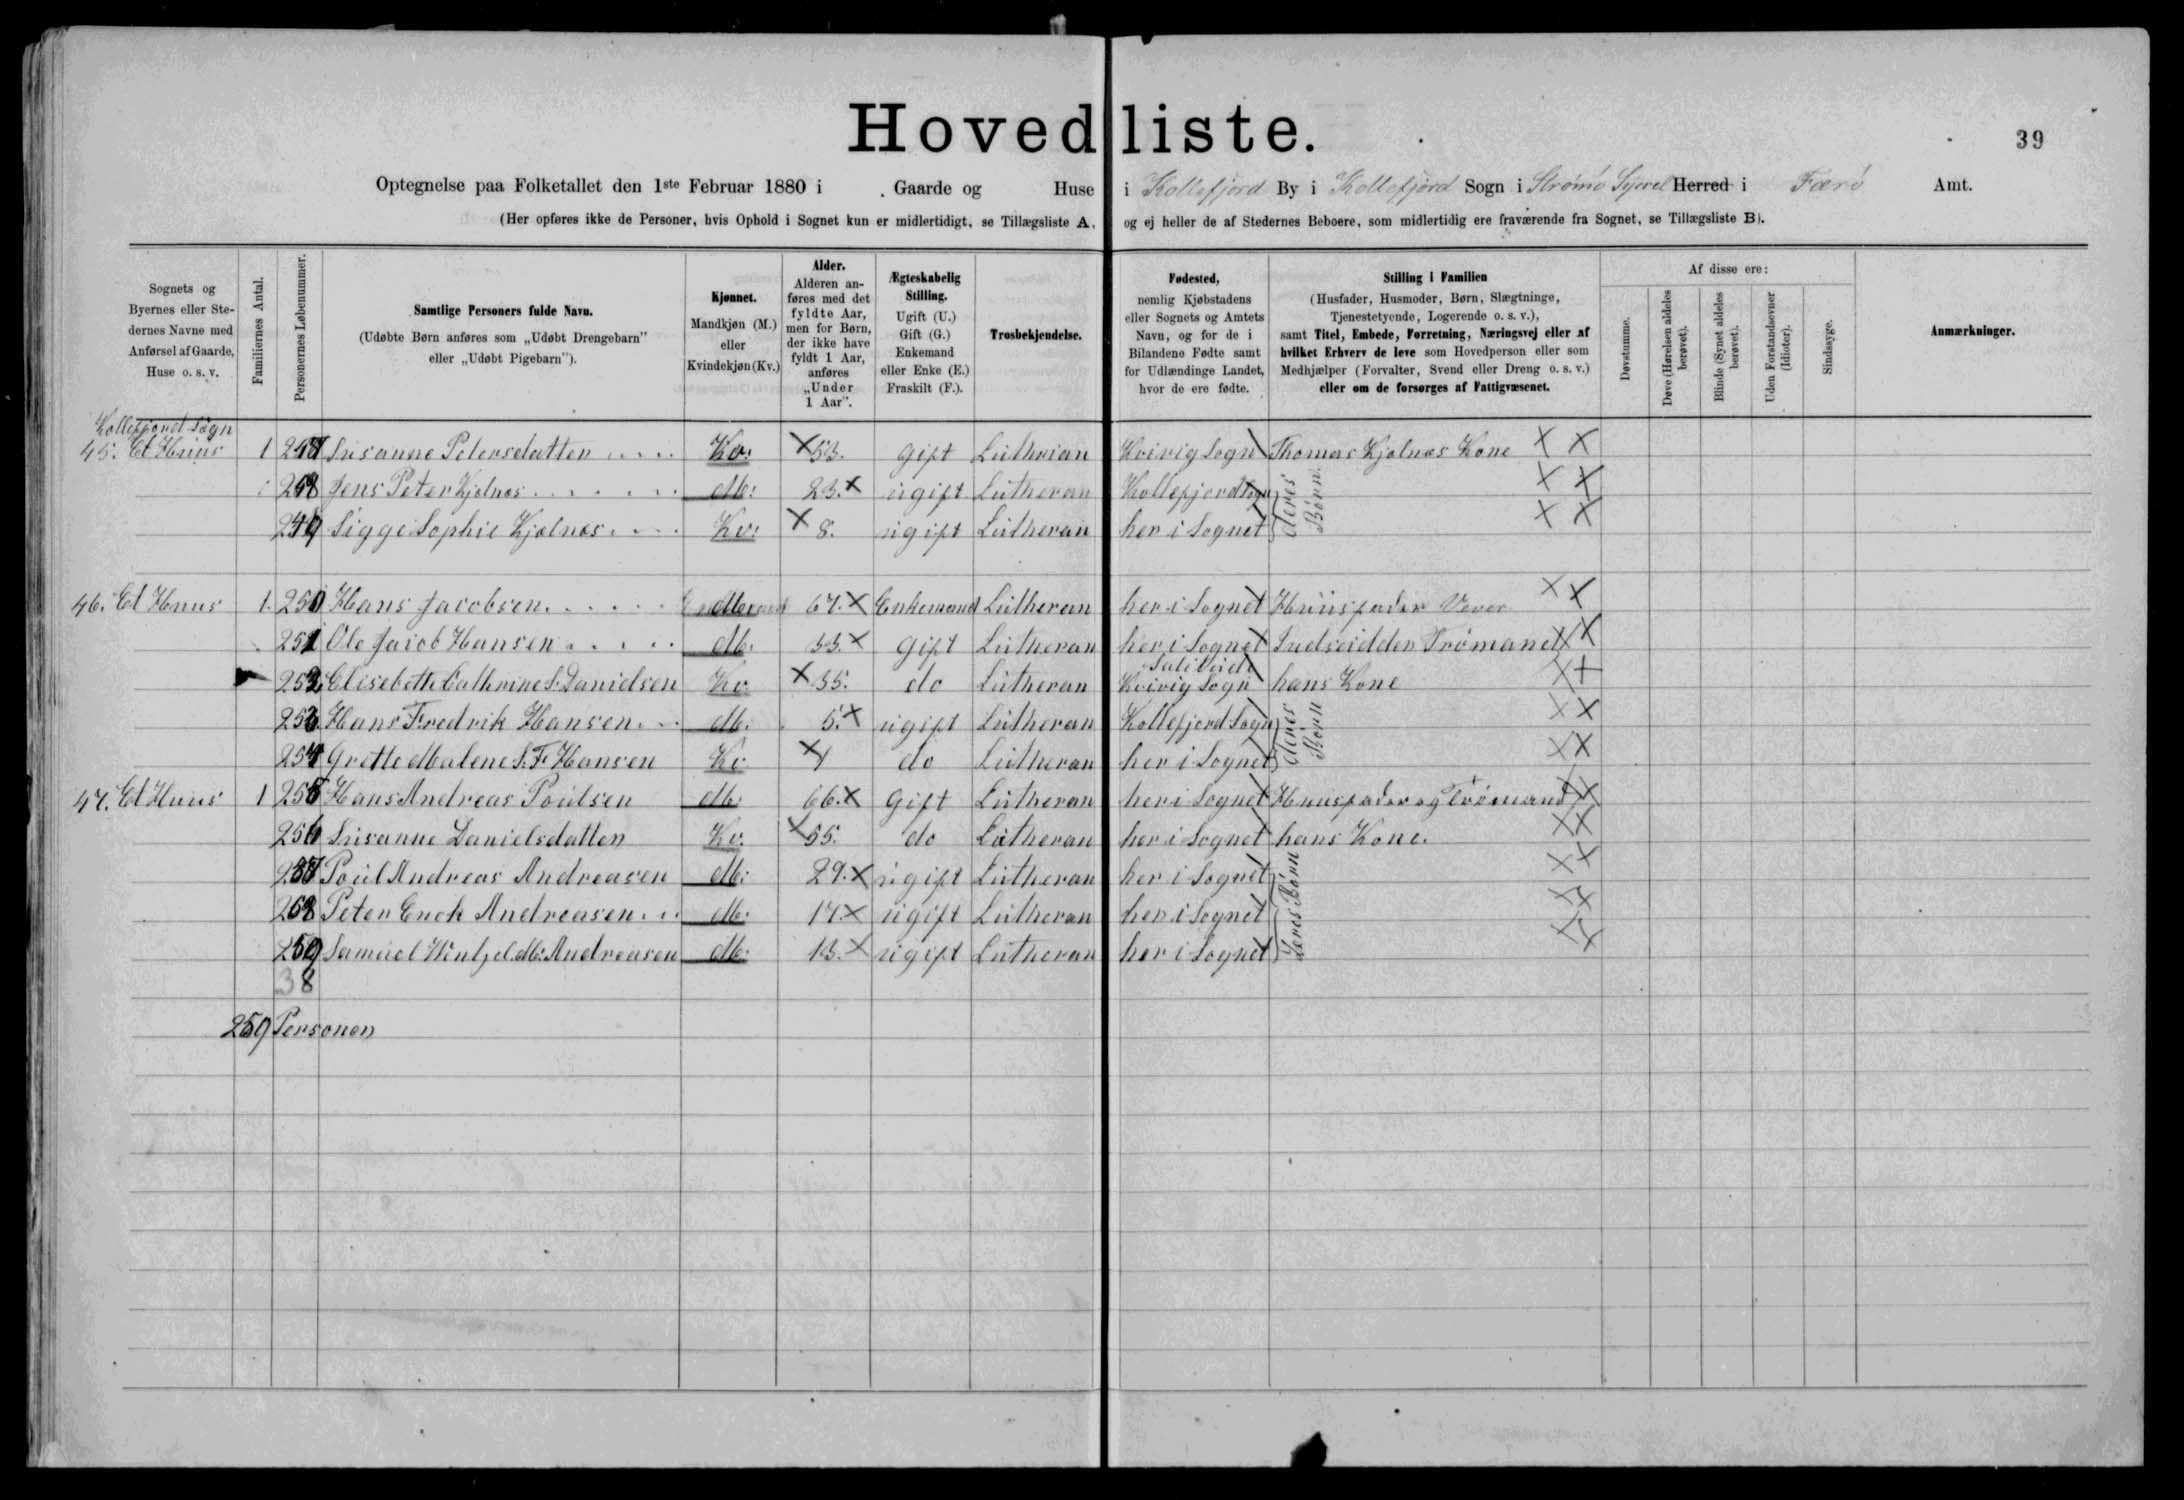 Hovedliste.
39
Optegnelse paa Folketallet den 1ste Februar 1880 i . Gaarde og Huse i Kollefjord By i Kollefjord Sogn i Strømø Syssel Herred i Færø Amt.
(Her opføres ikke de Personer, hvis Ophold i Sognet kun er midlertidigt, se Tillægsliste A, og ej heller de af Stedernes Beboere, som midlertidig ere fraværende fra Sognet, se Tillægsliste B).
Sognets og Byernes eller Stedernes Navne med Anførsel af Gaarde, Huse o. s. v.
Familiernes Antal.
Personernes Løbenummer.
Samtlige Personers fulde Navn.
(Udøbte Børn anføres som „Udøbt Drengebarn" eller „Udøbt Pigebarn").
Kjønnet.
Mandkjøn (M.) eller Kvindekjøn (Kv.)
Alder.
Alderen anføres med det fyldte Aar, men for Børn, der ikke have fyldt 1 Aar, anføres „Under 1 Aar".
Ægteskabelig Stilling.
Ugift (U.) Gift (G.) Enkemand eller Enke (E.) Fraskilt (F.).
Trosbekjendelse.
Fødested,
nemlig Kjøbstadens eller Sognets og Amtets Navn, og for de i Bilandene Fødte samt for Udlændinge Landet, hvor de ere fødte.
Stilling i Familien
(Husfader, Husmoder, Børn, Slægtninge, Tjenestetyende, Logerende o. s. v.),
samt Titel, Embede, Forretning, Næringsvej eller af hvilket Erhverv de leve som Hovedperson eller som Medhjælper (Forvalter, Svend eller Dreng o. s. v.) eller om de forsørges af Fattigvæsenet.
Af disse ere:
Døvstumme.
Døve (Hørelsen aldeles berøvet).
Blinde (Synet aldeles berøvet).
Uden Forstandsevner (Idioter).
Sindssyge.
Anmærkninger.
Kollefjord Sogn
45. Et Huus 1 247 Susanne Petersdatter Kv: X 53. gift Lutherian Kvivig Sogn Thomas Kjølnæs Kone X X
248 Jens Peter Kjølnæs M: 23. X ugift Lutheran Kollefjord Sogn deres Børn X X
249 Sigge Sophie Kjølnæs Kv: X 8. ugift Lutheran her i Sognet X X
46. Et Huus 1. 250 Hans Jacobsen 67. X Enkemand Lutheran her i Sognet Huusfader Væver X X
251 Ole Jacob Hansen M: 33. X gift Lutheran her i Sognet X X
252 Elisebeth Cathrine S. Danielsen Kv. X 35. do Lutheran Kvivig Sogn hans Kone X X
253 Hans Fredrik Hansen M. 5. X ugift Lutheran Kollefjord Sogn deres Børn X X
254 Grette Malene S. F. Hansen Kv X do Lutheran her i Sognet X X
47. Et Huus 1 255 Hans Andreas Poulsen M. 66. X Gift Lutheran her i Sognet Huusfader og Trømand X X
256 Susanne Danielsdatter Kv. X 55. do Lutheran her i Sognet hans Kone. X X
257 Poul Andreas Andreasen M: 29. X ugift Lutheran her i Sognet Deres Børn X X
258 Peter Enok Andreasen M. 17. X ugift Lutheran her i Sognet X X
259 Samuel Wentzel M: Andreasen M. 13. X ugift Lutheran her i Sognet X X
38
259 Personer